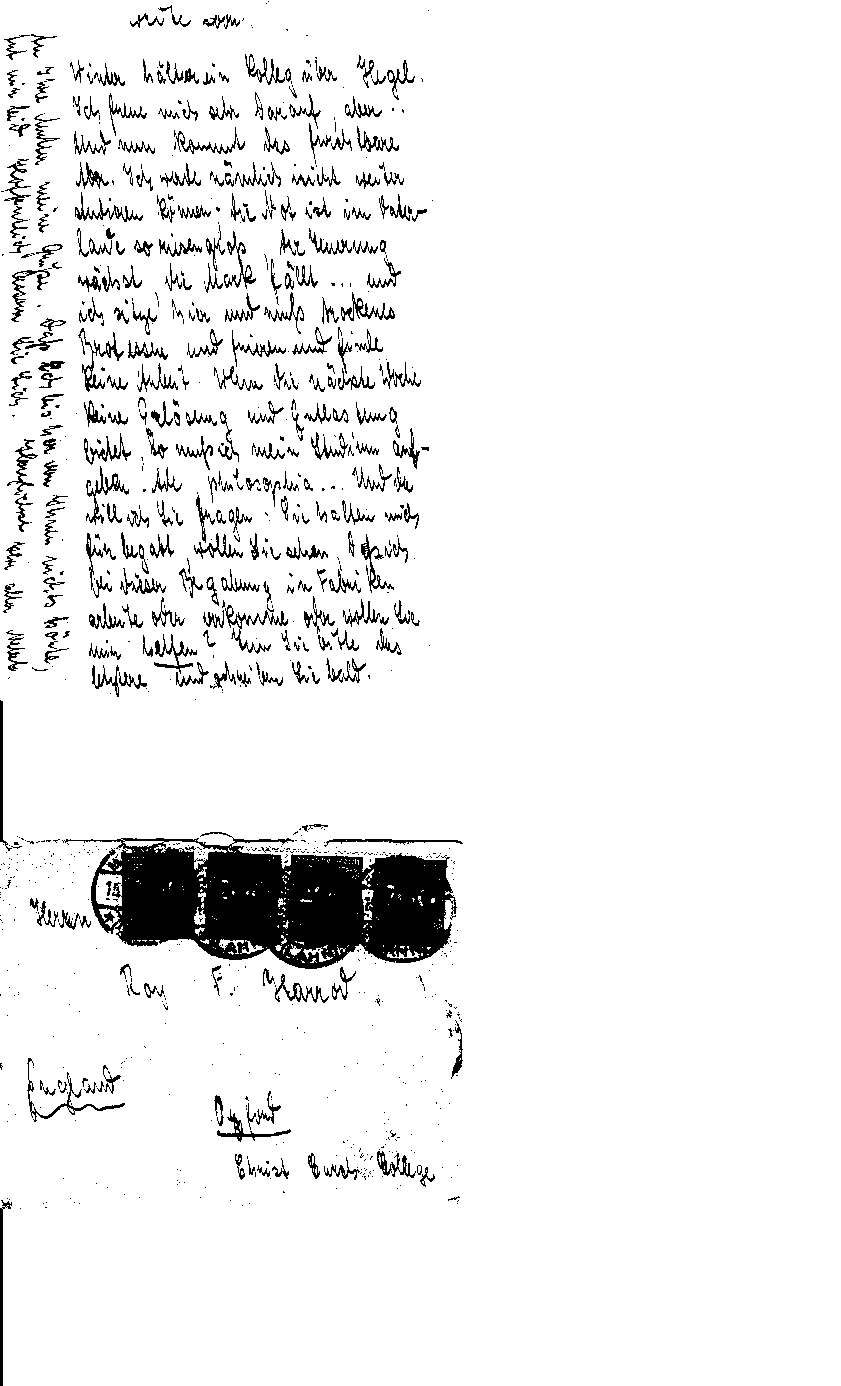 Winter hält er ein Kolleg über Hegel.
Ich freue mich sehr darauf, aber ..
Und nun kommt das furchtbare
Aber. Ich werde nämlich nicht weiter
studieren können; die Not ist im Vater-
lande so riesengroß, die Teuerung
wächst, die Mark fällt ... und
ich sitze hier und muß trockenes
Brot essen und frieren und finde
keine Arbeit. Wenn die nächste Woche
keine Erlösung und Entlastung
bietet, so muß ich mein Studium auf-
geben. Ade philosophia ... Und da
will ich Sie fragen: Sie halten mich
für begabt, wollen Sie sehen, daß ich
bei dieser Begabung in Fabriken
arbeite oder verkomme oder wollen Sie
mir helfen? Tun Sie bitte das
letztere und schreiben Sie bald.
An Ihre Mutter meine Grüße. Daß ich bisher von Ihnen nichts hörte,
tut mir leid. Hoffentlich bessern Sie sich. Herzlichst Ihr alter
Herrn
Roy F. Harrod
England
Oxford
Christ Church College